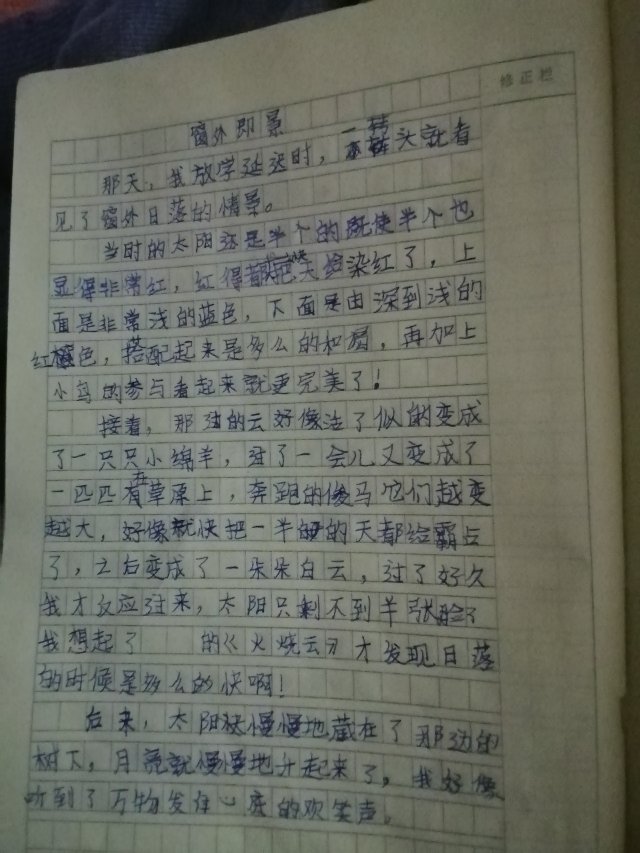 修正栏
窗外即景
那天，我放学延迟时，一转头就看
见了窗外日落的情景。
当时的太阳还是半个的既使半个也
显得非常红，红得都把天给染红了，上
面是非常浅的蓝色，下面是由深到浅的
红橙色，搭配起来是多么的和谐，再加上
小鸟的参与看起来就更完美了！
接着，那边的云好像活了似的变成
了一只只小绵羊，过了一会儿又变成了
一匹匹在草原上，奔跑的俊马它们越变
越大，好像就快把一半的天都给霸占
了，之后变成了一朵朵白云，过了好久
我才反应过来，太阳只剩不到半张脸了
我想起了 的《火烧云》才发现日落
的时候是多么的快啊！
后来，太阳就慢慢地藏在了那边的
树下，月亮就慢慢地升起来了，我好像
听到了万物发自心底的欢笑声。